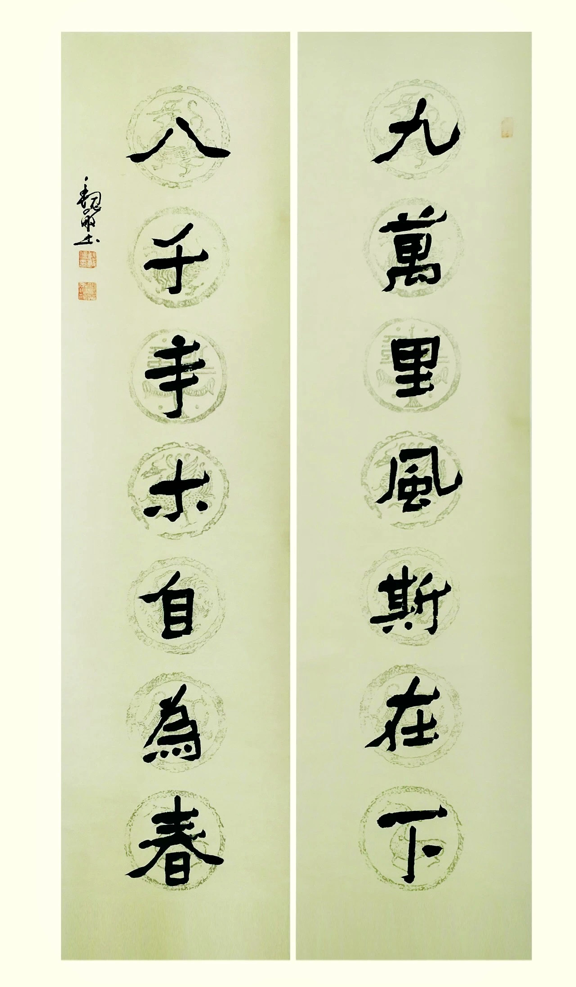 九萬里風斯在下
八千年木自為春